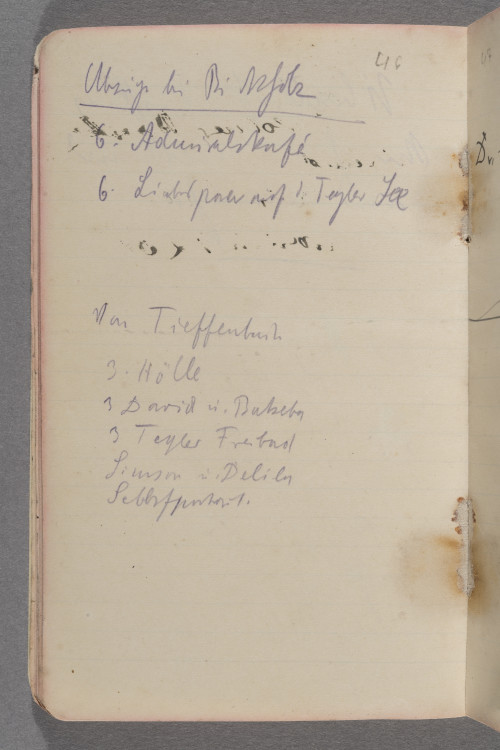 46
Abzüge bei Birkholz
6. Admiralskafé
6. Liebespaar auf d. Tegler See
Von Tieffenbach
3. Hölle
3 David u. Batseba
3 Tegler Freibad
Simson u. Delila
Selbstportrait.